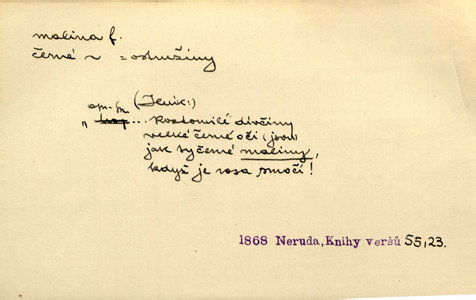 malina f.
černé ~ = ostružiny
(Jeník:)
„ ... Roztomilé dívčiny
velké černé oči (jsou)
jak ty černé maliny,
když je rosa smočí!
1868 Neruda, Knihy veršů 55,23.